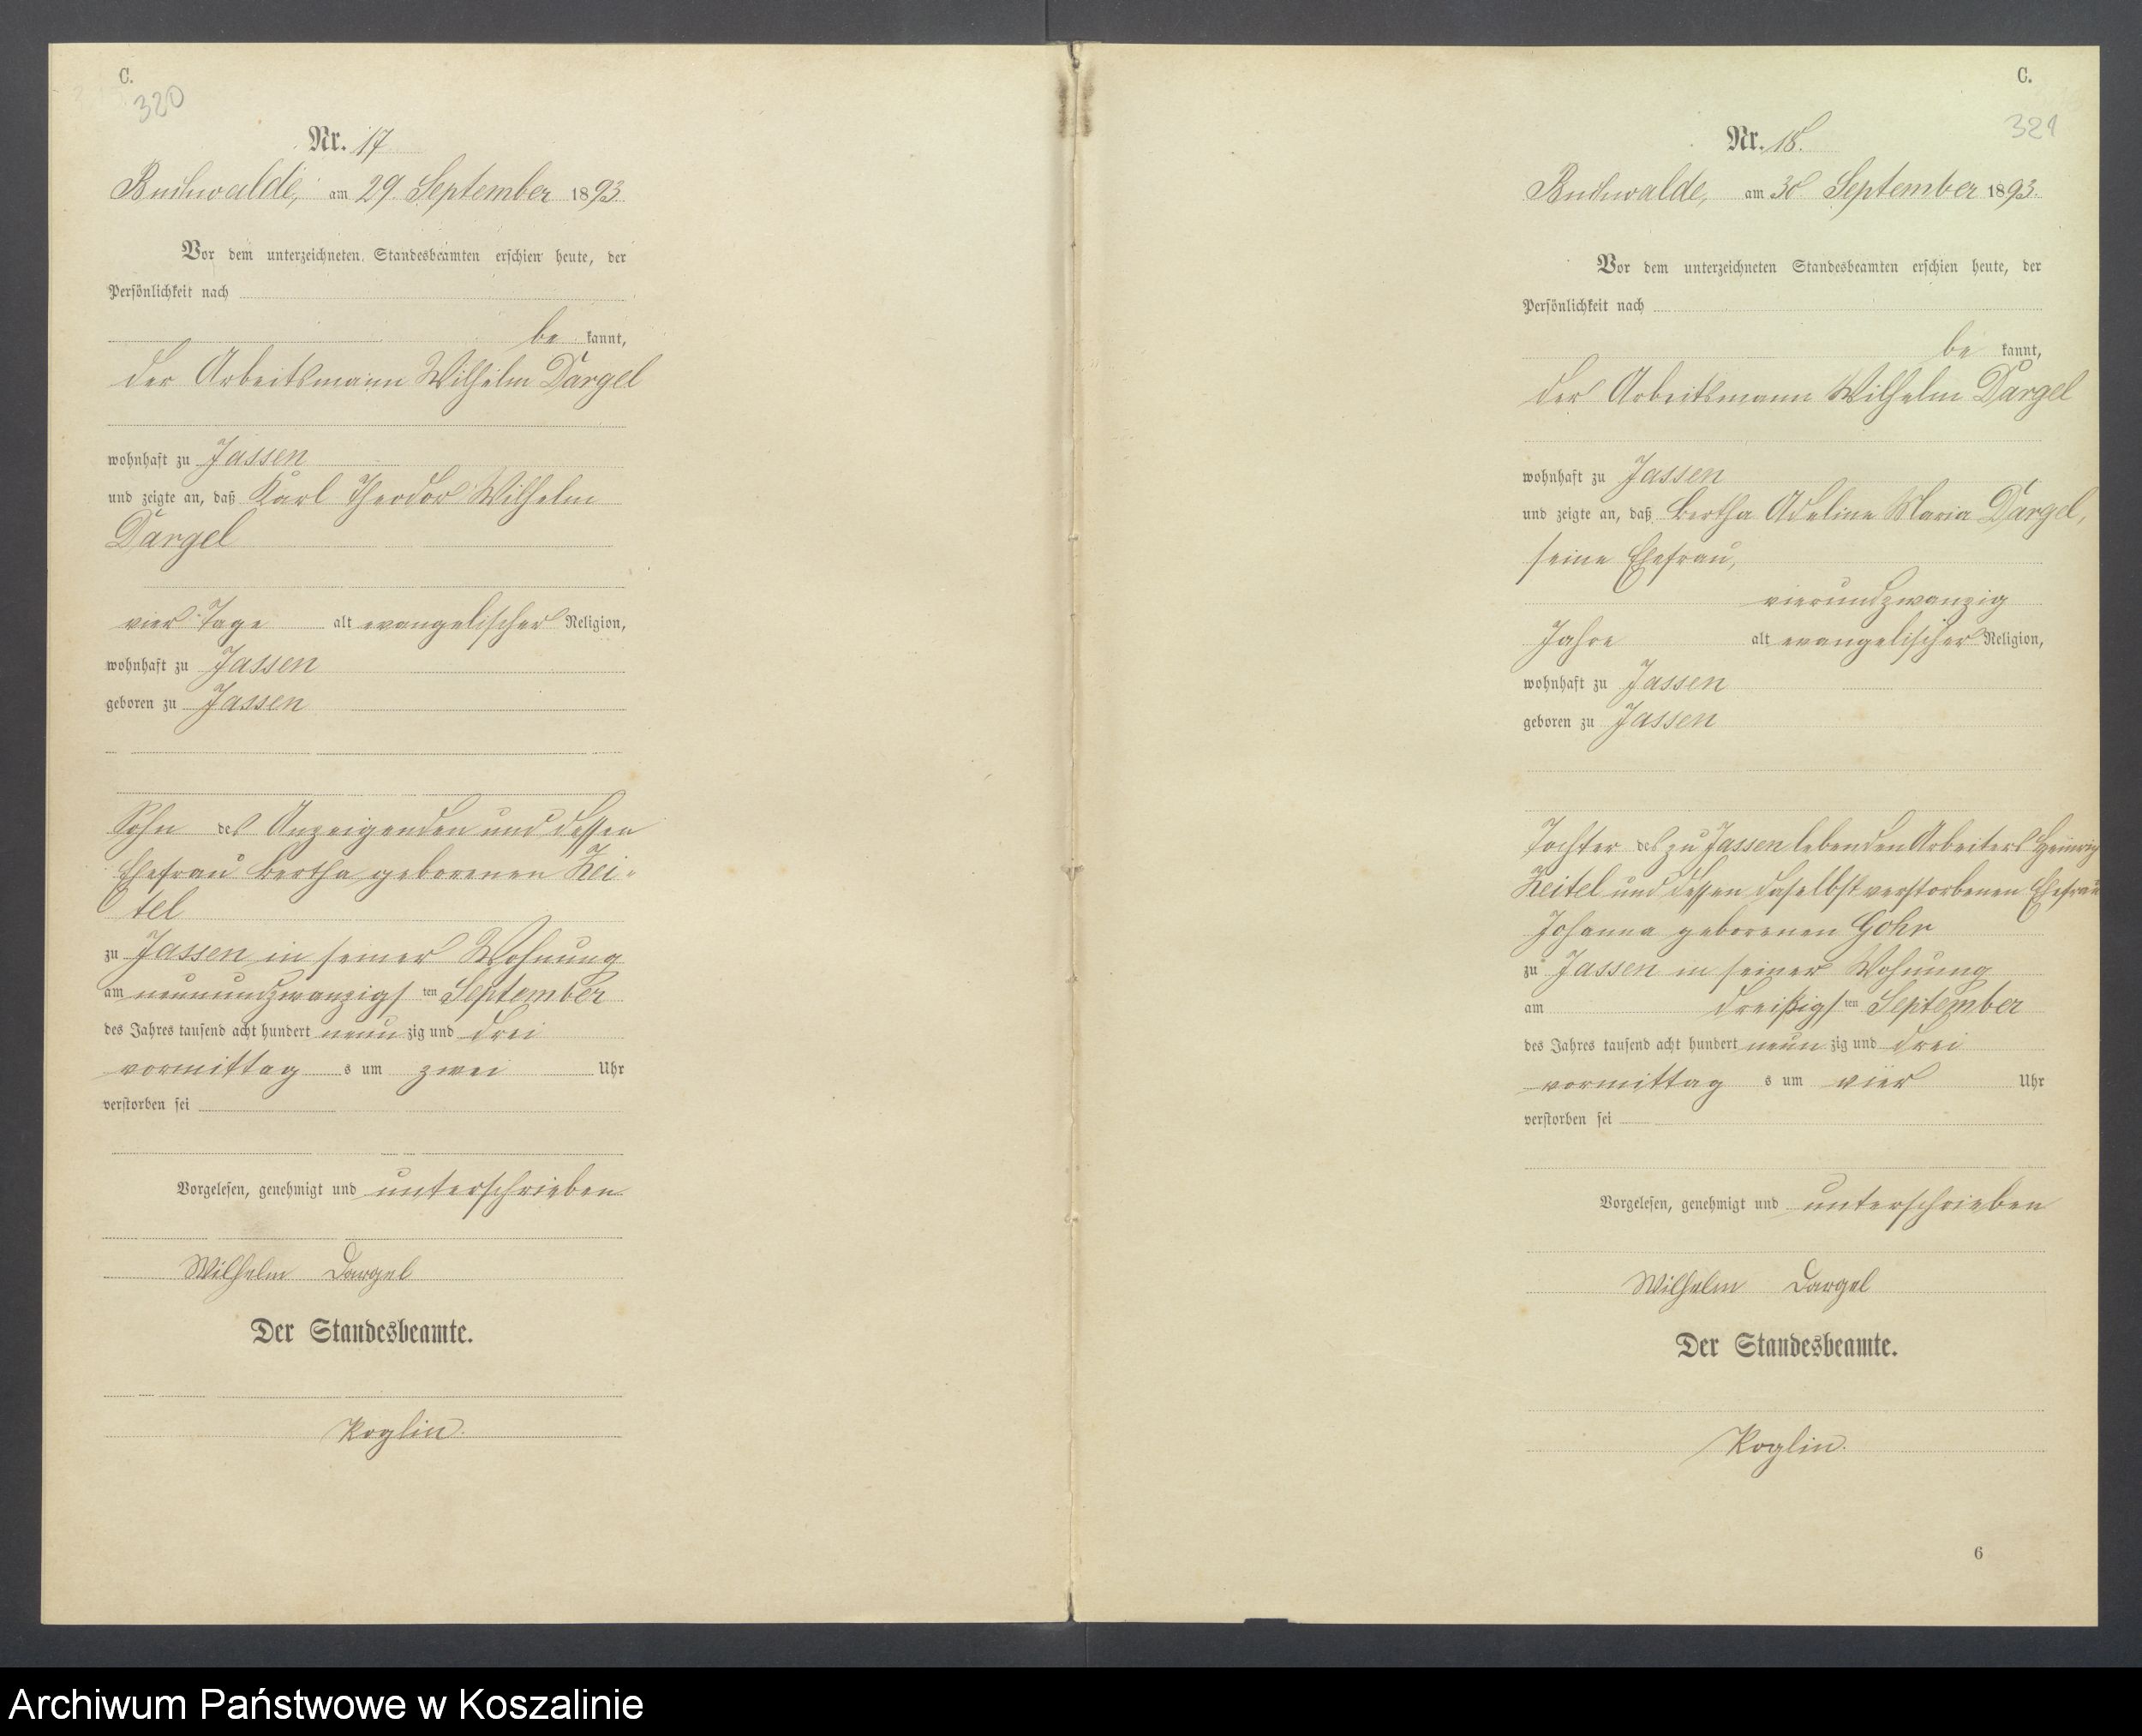 C.
320
Nr. 17
Buchwalde, am 29. September 1893.
Vor dem unterzeichneten Standesbeamten erschien heute, der
Persönlichkeit nach
be kannt,
der Arbeitsmann Wilhelm Dargel
wohnhaft zu Jassen
und zeigte an, daß Karl Theodor Wilhelm
Dargel
vier Tage alt evangelischer Religion,
wohnhaft zu Jassen
geboren zu Jassen
Sohn des Anzeigenden und dessen
Ehefrau Bertha geborenen Zei-
tel
zu Jassen in seiner Wohnung
am neunundzwanzigsten September
des Jahres tausend acht hundert neunzig und drei
vormittags um zwei Uhr
verstorben sei
Vorgelesen, genehmigt und unterschrieben
Wilhelm Dargel
Der Standesbeamte.
Koglin.
C.
321
Nr. 18.
Buchwalde, am 30. September 1893.
Vor dem unterzeichneten Standesbeamten erschien heute, der
Persönlichkeit nach
be kannt,
der Arbeitsmann Wilhelm Dargel
wohnhaft zu Jassen
und zeigte an, daß Bertha Adeline Maria Dargel,
seine Ehefrau,
vierundzwanzig
Jahre alt evangelischer Religion,
wohnhaft zu Jassen
geboren zu Jassen
Tochter des zu Jassen lebenden Arbeiters Heinrich
Zeitel und dessen daselbst verstorbenen Ehefrau
Johanna geborenen Gohr
zu Jassen in seiner Wohnung
am dreißigsten September
des Jahres tausend acht hundert neunzig und drei
vormittags um vier Uhr
verstorben sei
Vorgelesen, genehmigt und unterschrieben
Wilhelm Dargel
Der Standesbeamte.
Koglin.
6
Archiwum Państwowe w Koszalinie